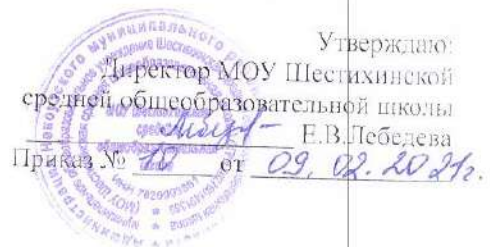 Утверждаю:
Директор МОУ Шестихинской
средней общеобразовательной школы
Е.В.Лебедева
Приказ № 10 от 09.02.2021г.